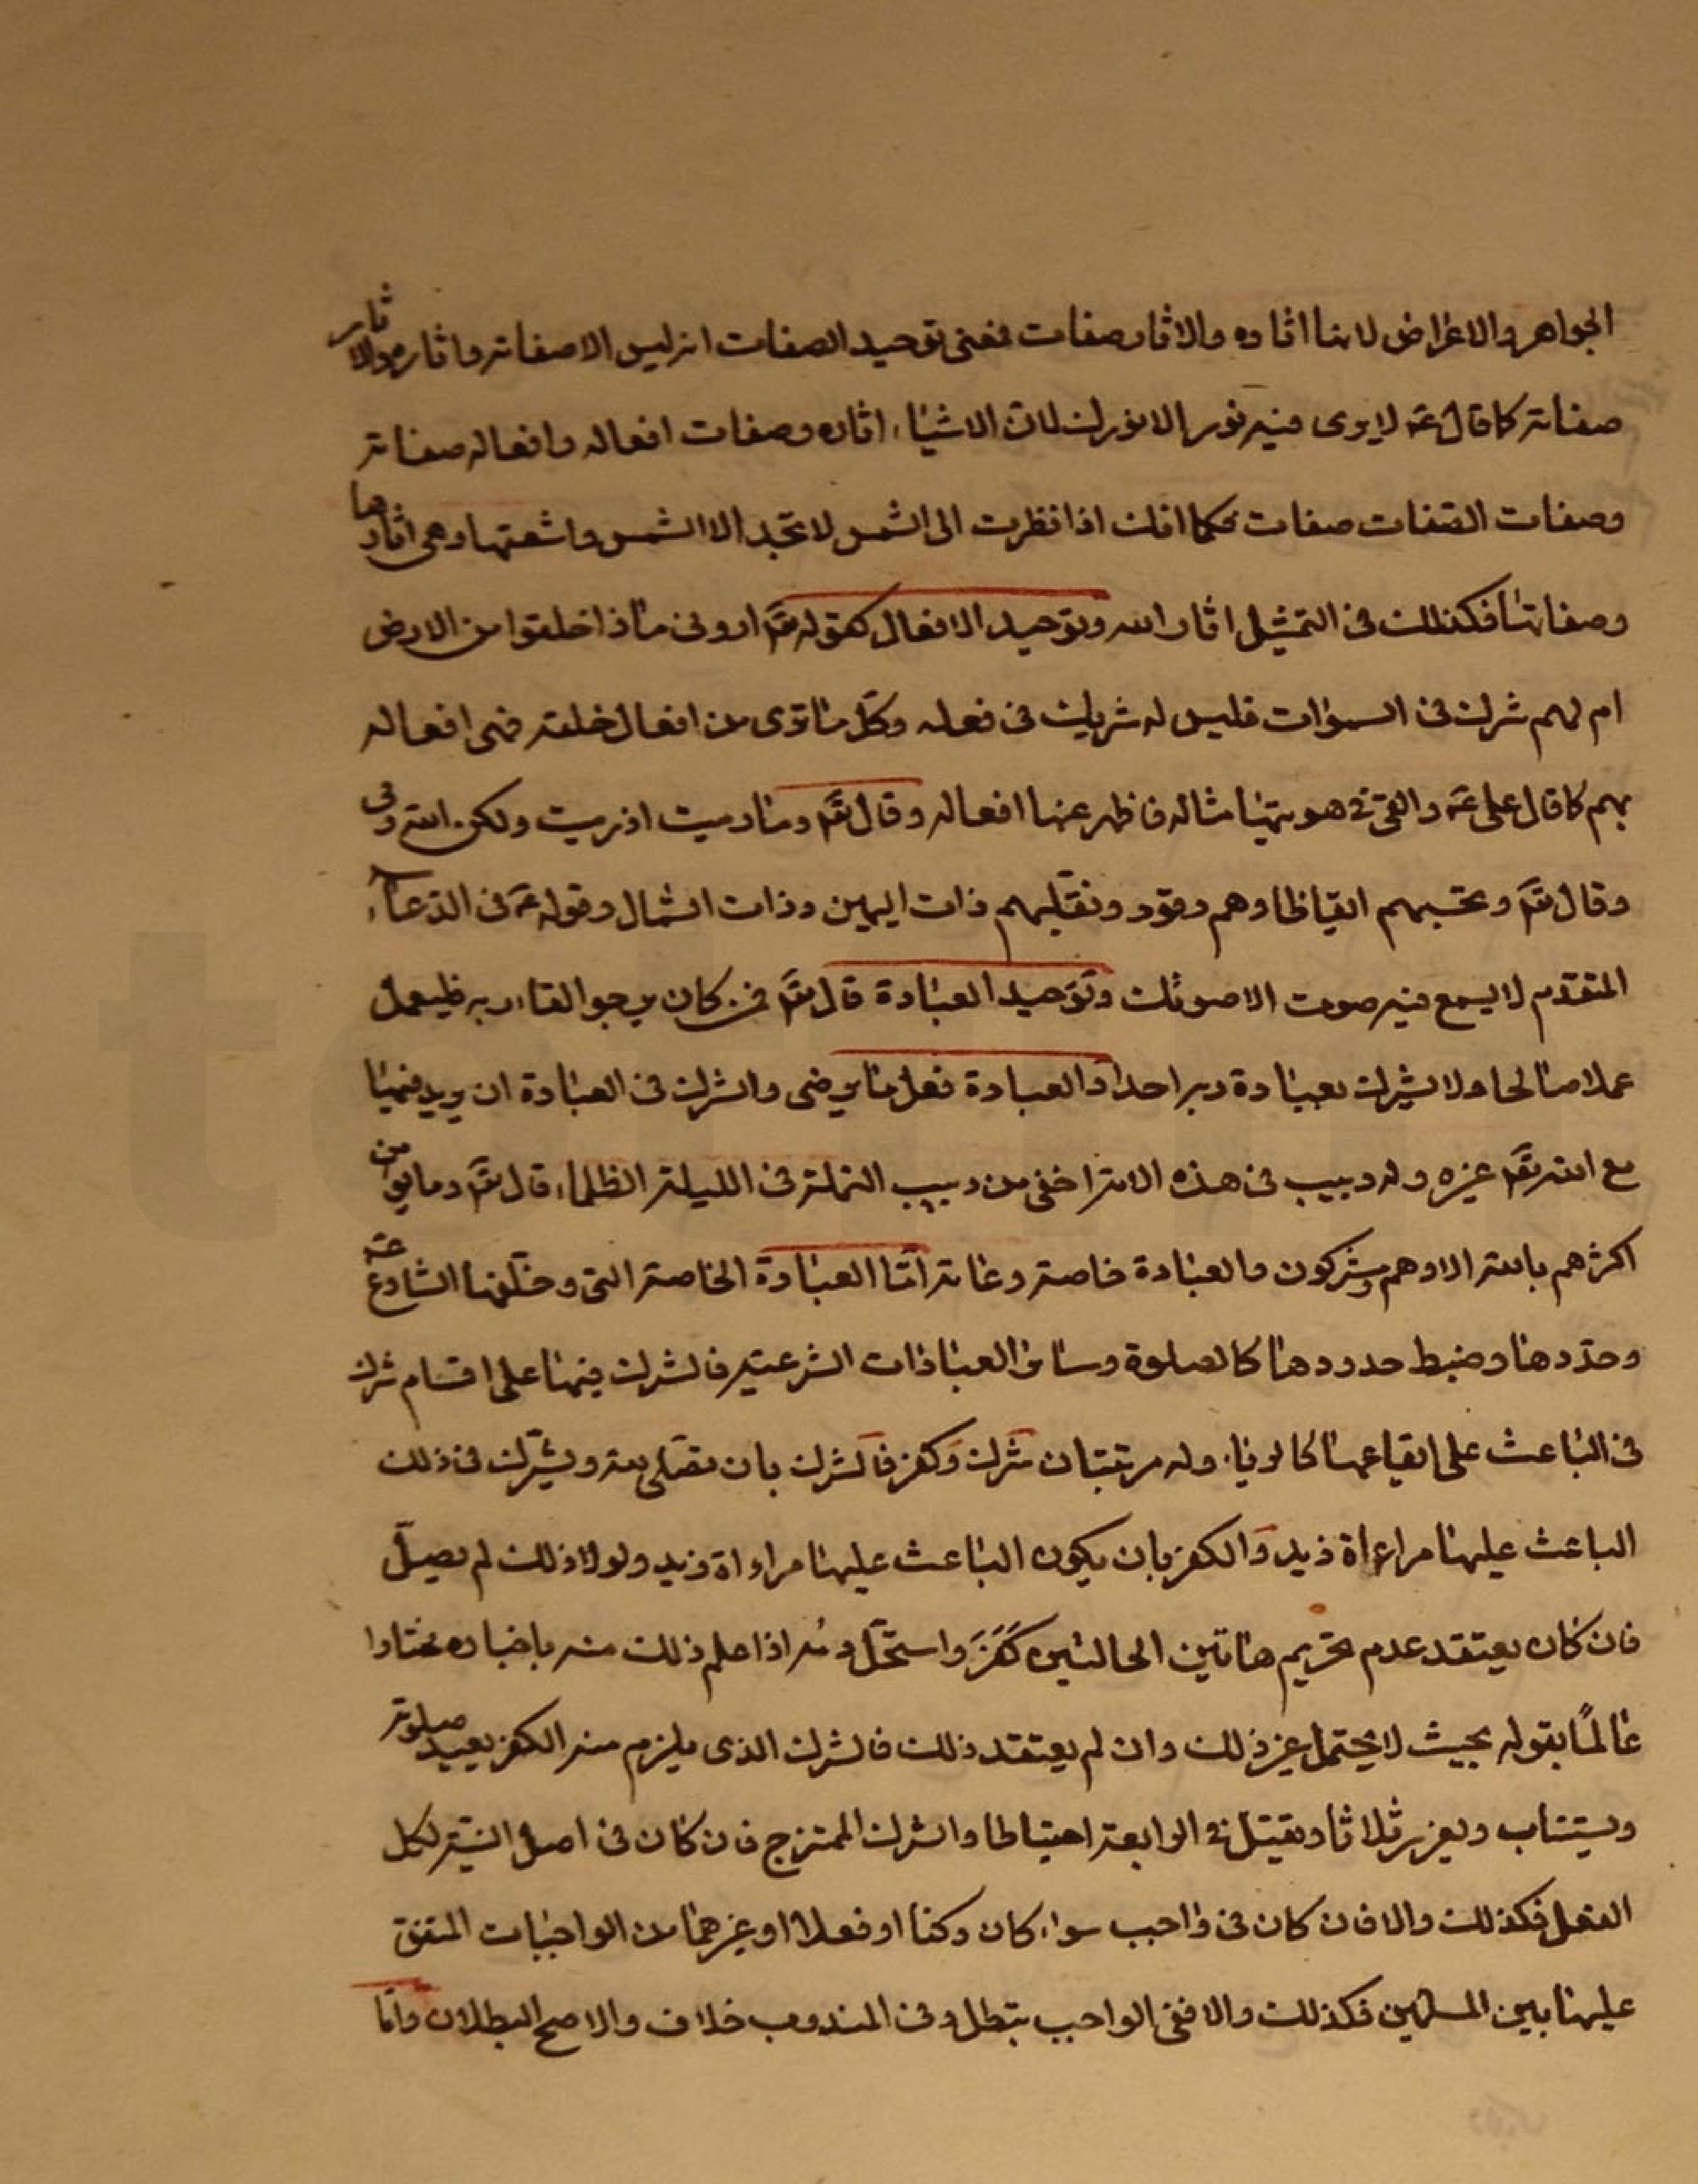 الجواهر والاعراض لانها اثاره والاثار صفات فمعنى توحيد الصفات انه ليس الا صفاته واثاره والاثار
صفاته كما قال عہ لا يرى فيه نور الا نورك لان الاشياء اثاره وصفات افعاله وافعاله صفاته
وصفات الصفات صفات فكما انك اذا نظرت الى الشمس لا تجد الا الشمس واشعتها وهى اثارها
وصفاتها فكذلك فى التمثيل اثار الله وتوحيد الافعال كقوله تعہ ارونى ماذا خلقوا من الارض
ام لهم شرك فى السموات فليس له شريك فى فعله وكل ما ترى من افعال خلقه فهى افعاله
بهم كما قال على عہ والقى فى هويتها مثاله فاظهر عنها افعاله وقال تعہ وما رميت اذ رميت ولكن الله رمى
وقال تعہ وتحسبهم ايقاظا وهم رقود ونقلبهم ذات اليمين وذات الشمال وقوله عہ فى الدعاء
المتقدم لا يسمع فيه صوت الا صوتك وتوحيد العبادة قال تعہ فمن كان يرجو لقاء ربه فليعمل
عملا صالحا ولا يشرك بعبادة ربه احدا والعبادة فعل ما يرضى والشرك فى العبادة ان يريد فيها
مع الله تعہ غيره وله دبيب فى هذه الامة اخفى من دبيب النملة فى الليلة الظلماء قال تعہ وما يؤمن
اكثرهم بالله الا وهم مشركون والعبادة خاصة وعامة اما العبادة الخاصة التى وظفها الشارع عہ
وحددها وضبط حدودها كالصلوة وسائر العبادات الشرعية فالشرك فيها على اقسام شرك
فى الباعث على ايقاعها كالرياء وله مرتبتان شرك وكفر فالشرك بان يصلى لله ويشرك فى ذلك
الباعث عليها مراءاة زيد والكفر بان يكون الباعث عليها مراءاة زيد ولولا ذلك لم يصل
فان كان يعتقد عدم تحريم هاتين الحالتين كفر واستحل دمه اذا علم ذلك منه باخباره مختارا
عالما بقوله بحيث لا يحتمل غير ذلك وان لم يعتقد ذلك فالشرك الذى يلزم منه الكفر يعيد صلوته
ويستتاب ويعزر ثلاثا ويقتل فى الرابعة احتياطا والشرك الممتزج فان كان فى اصل النية لكل
الفعل فكذلك والا فان كان فى واجب سواء كان ركنا او فعلا او غيرهما من الواجبات المتفق
عليها بين المسلمين فكذلك والا ففى الواجب تبطل وفى المندوب خلاف والاصح البطلان واما